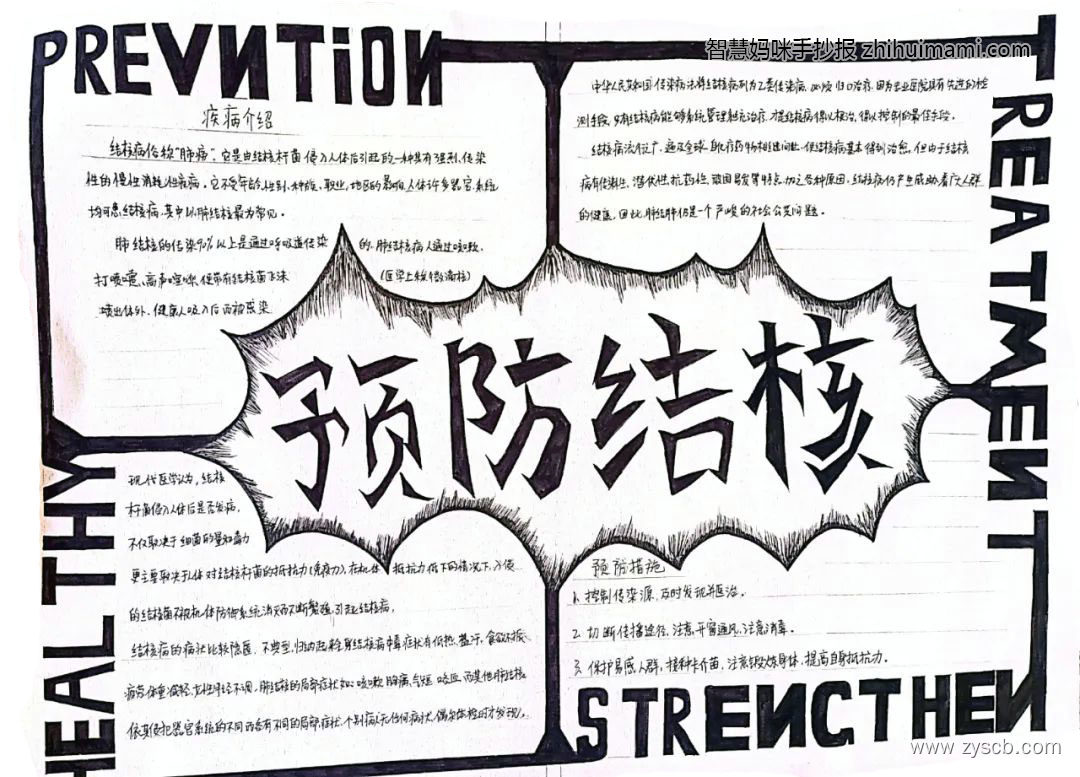 PREVNTION
智慧妈咪手抄报 zhihuimami.com
TREATMENT
疾病介绍
结核病俗称“肺痨”，它是由结核杆菌侵入人体后引起的一种具有强烈传染
性的慢性消耗性疾病。它不受年龄、性别、种族、职业、地区的影响，人体许多器官、系统
均可患结核病，其中以肺结核最为常见。
肺结核的传染90%以上是通过呼吸道传染的，肺结核病人通过咳嗽、
打喷嚏、高声喧哗，使带有结核菌飞沫（医学上称微滴核）
喷出体外，健康人吸入后而被感染
中华人民共和国传染病法将结核病列为乙类传染病，必须归口治疗，因为专业医院具有先进的检
测手段，对结核病能够系统管理和充治疗，才是结核病得以根治，得以控制的最佳手段。
结核病流行广，遍及全球，
使结核病基本得到治愈，但由于结核
病有传染性、潜伏性、抗药性、
易发等特点，加之各种原因，结核病仍严重威胁着广大人群
的健康，因此，肺结核仍是一个严峻的社会公共问题。
预防结核
HEALTHY
现代医学认为，结核
杆菌侵入人体后是否发病，
不仅取决于细菌的量和毒力
更主要取决于人体对结核杆菌的抵抗力（免疫力），在机体抵抗力低下的情况下，入侵
的结核菌不被机体防御系统消灭而不断繁殖，引起结核病，
结核病的病状比较隐匿、不典型，归纳起来
结核病中毒症状有低热、盗汗、食欲不振、
疲劳、体重减轻、女性月经不调，肺结核的局部症状如：咳嗽、胸痛、气短、咯血，而其他肺结核
依其侵犯器官系统的不同而各有不同的局部症状，个别病人无任何病状，偶尔体检时才发现。
预防措施
1、控制传染源，及时发现并医治。
2、切断传播途径，注意开窗通风，注意消毒。
3、保护易感人群，接种卡介苗，注意锻炼身体，提高自身抵抗力。
STRENGTHEN
www.zyscb.com